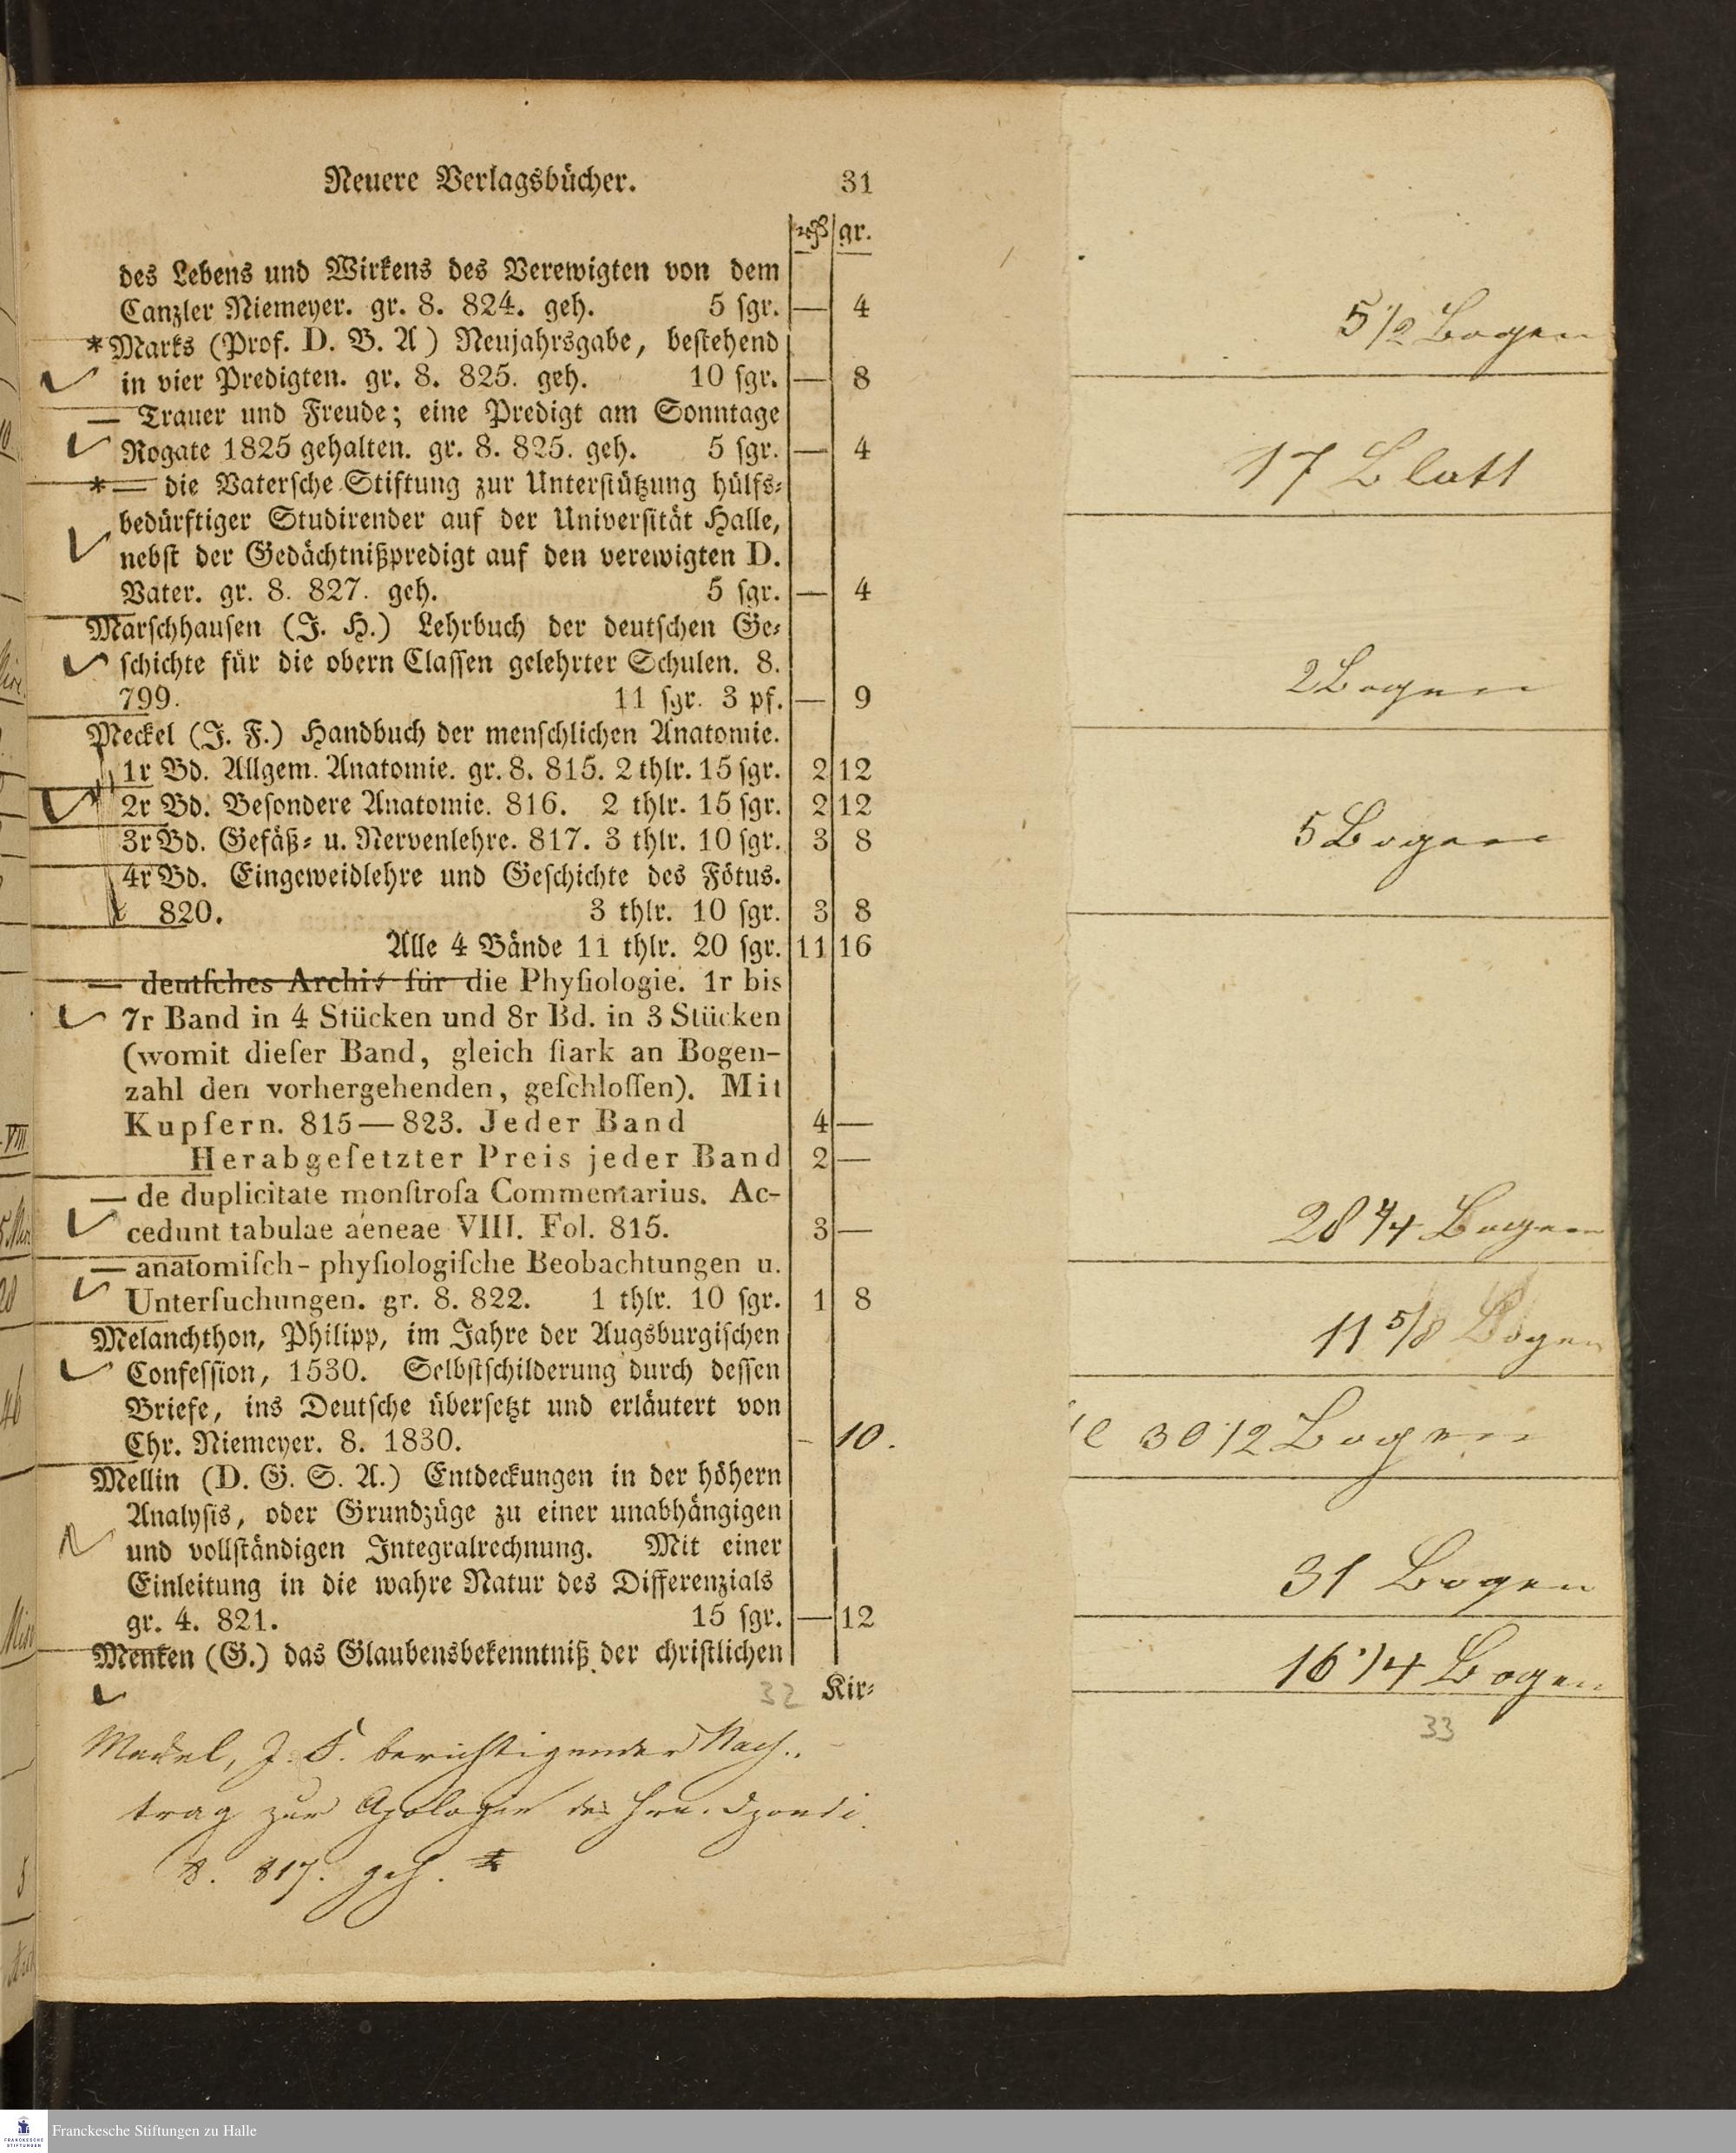 Neuere Verlagsbücher. 31
gr.
des Lebens und Wirkens des Verewigten von dem
Canzler Niemeyer. gr. 8. 824. geh. 5 sgr. — 4
*Marks (Prof. D. B. A) Neujahrsgabe, bestehend
in vier Predigten. gr. 8. 825. geh. 10 sgr. — 8
— Trauer und Freude; eine Predigt am Sonntage
Rogate 1825 gehalten. gr. 8. 825. geh. 5 sgr. — 4
*— die Vatersche Stiftung zur Unterstützung hülfs-
bedürftiger Studirender auf der Universität Halle,
nebst der Gedächtnißpredigt auf den verewigten D.
Vater. gr. 8. 827. geh. 5 sgr. — 4
Marschhausen (J. H.) Lehrbuch der deutschen Ge-
schichte für die obern Classen gelehrter Schulen. 8.
799. 11 sgr. 3 pf. — 9
Meckel (J. F.) Handbuch der menschlichen Anatomie.
1r Bd. Allgem. Anatomie. gr. 8. 815. 2 thlr. 15 sgr. 2 12
2r Bd. Besondere Anatomie. 816. 2 thlr. 15 sgr. 2 12
3r Bd. Gefäß- u. Nervenlehre. 817. 3 thlr. 10 sgr. 3 8
4r Bd. Eingeweidlehre und Geschichte des Fötus.
820. 3 thlr. 10 sgr. 3 8
Alle 4 Bände 11 thlr. 20 sgr. 11 16
— deutsches Archiv für die Physiologie. 1r bis
7r Band in 4 Stücken und 8r Bd. in 3 Stücken
(womit dieser Band, gleich stark an Bogen-
zahl den vorhergehenden, geschlossen). Mit
Kupfern. 815—823. Jeder Band 4 —
Herabgesetzter Preis jeder Band 2 —
— de duplicitate monstrosa Commentarius. Ac-
cedunt tabulae aeneae VIII. Fol. 815. 3 —
— anatomisch-physiologische Beobachtungen u.
Untersuchungen. gr. 8. 822. 1 thlr. 10 sgr. 1 8
Melanchthon, Philipp, im Jahre der Augsburgischen
Confession, 1530. Selbstschilderung durch dessen
Briefe, ins Deutsche übersetzt und erläutert von
Chr. Niemeyer. 8. 1830. - 10.
Mellin (D. G. S. A.) Entdeckungen in der höhern
Analysis, oder Grundzüge zu einer unabhängigen
und vollständigen Integralrechnung. Mit einer
Einleitung in die wahre Natur des Differenzials
gr. 4. 821. 15 sgr. — 12
Menken (G.) das Glaubensbekenntniß der christlichen
32 Kir-
Meckel, J. F. berichtigender Nach-
trag zur Apologie des Hrn. Dzondi
8. 817. geh. *
5 1/2 Bogen
17 Blatt
2 Bogen
5 Bogen
28 3/4 Bogen
11 5/8 Bogen
30 1/2 Bogen
31 Bogen
16 1/4 Bogen
33
Franckesche Stiftungen zu Halle